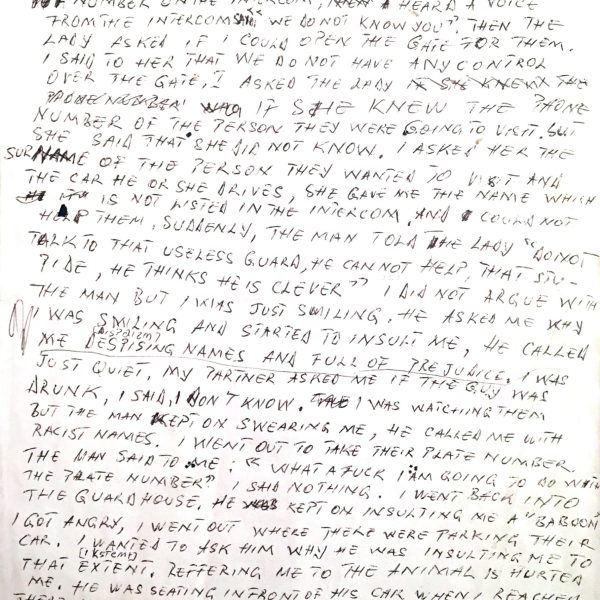 NUMBER ON THE INTERCOM, I HEARD A VOICE
FROM THE INTERCOM SAID "WE DO NOT KNOW YOU". THEN THE
LADY ASKED IF I COULD OPEN THE GATE FOR THEM.
I SAID TO HER THAT WE DO NOT HAVE ANY CONTROL
OVER THE GATE, I ASKED THE LADY IF SHE KNEW THE
PHONE NUMBER IF SHE KNEW THE PHONE
NUMBER OF THE PERSON THEY WERE GOING TO VISIT. BUT
SHE SAID THAT SHE DID NOT KNOW. I ASKED HER THE
SURNAME OF THE PERSON THEY WANTED TO VISIT AND
THE CAR HE OR SHE DRIVES, SHE GAVE ME THE NAME WHICH
IS NOT LISTED IN THE INTERCOM, AND I COULD NOT
HELP THEM. SUDDENLY, THE MAN TOLD THE LADY "DO NOT
TALK TO THAT USELESS GUARD, HE CANNOT HELP, THAT STU-
PIDE, HE THINKS HE IS CLEVER" I DID NOT ARGUE WITH
THE MAN BUT I WAS JUST SMILING. HE ASKED ME WHY
I WAS SMILING AND STARTED TO INSULT ME, HE CALLED
ME DESPISING NAMES AND FULL OF PREJUDICE. I WAS
JUST QUIET. MY PARTNER ASKED ME IF THE GUY WAS
DRUNK, I SAID, I DON'T KNOW. I WAS WATCHING THEM
BUT THE MAN KEPT ON SWEARING ME, HE CALLED ME WITH
RACIST NAMES. I WENT OUT TO TAKE THEIR PLATE NUMBER.
THE MAN SAID TO ME: "WHAT A FUCK I AM GOING TO DO WITH
THE PLATE NUMBER" I SAID NOTHING. I WENT BACK INTO
THE GUARDHOUSE, HE KEPT ON INSULTING ME A "BABOON"
I GOT ANGRY, I WENT OUT WHERE THERE WERE PARKING THEIR
CAR. I WANTED TO ASK HIM WHY HE WAS INSULTING ME TO
THAT EXTENT. REFFERING ME TO THE ANIMAL IS HURTED
ME. HE WAS SEATING INFRONT OF HIS CAR WHEN I REACHED